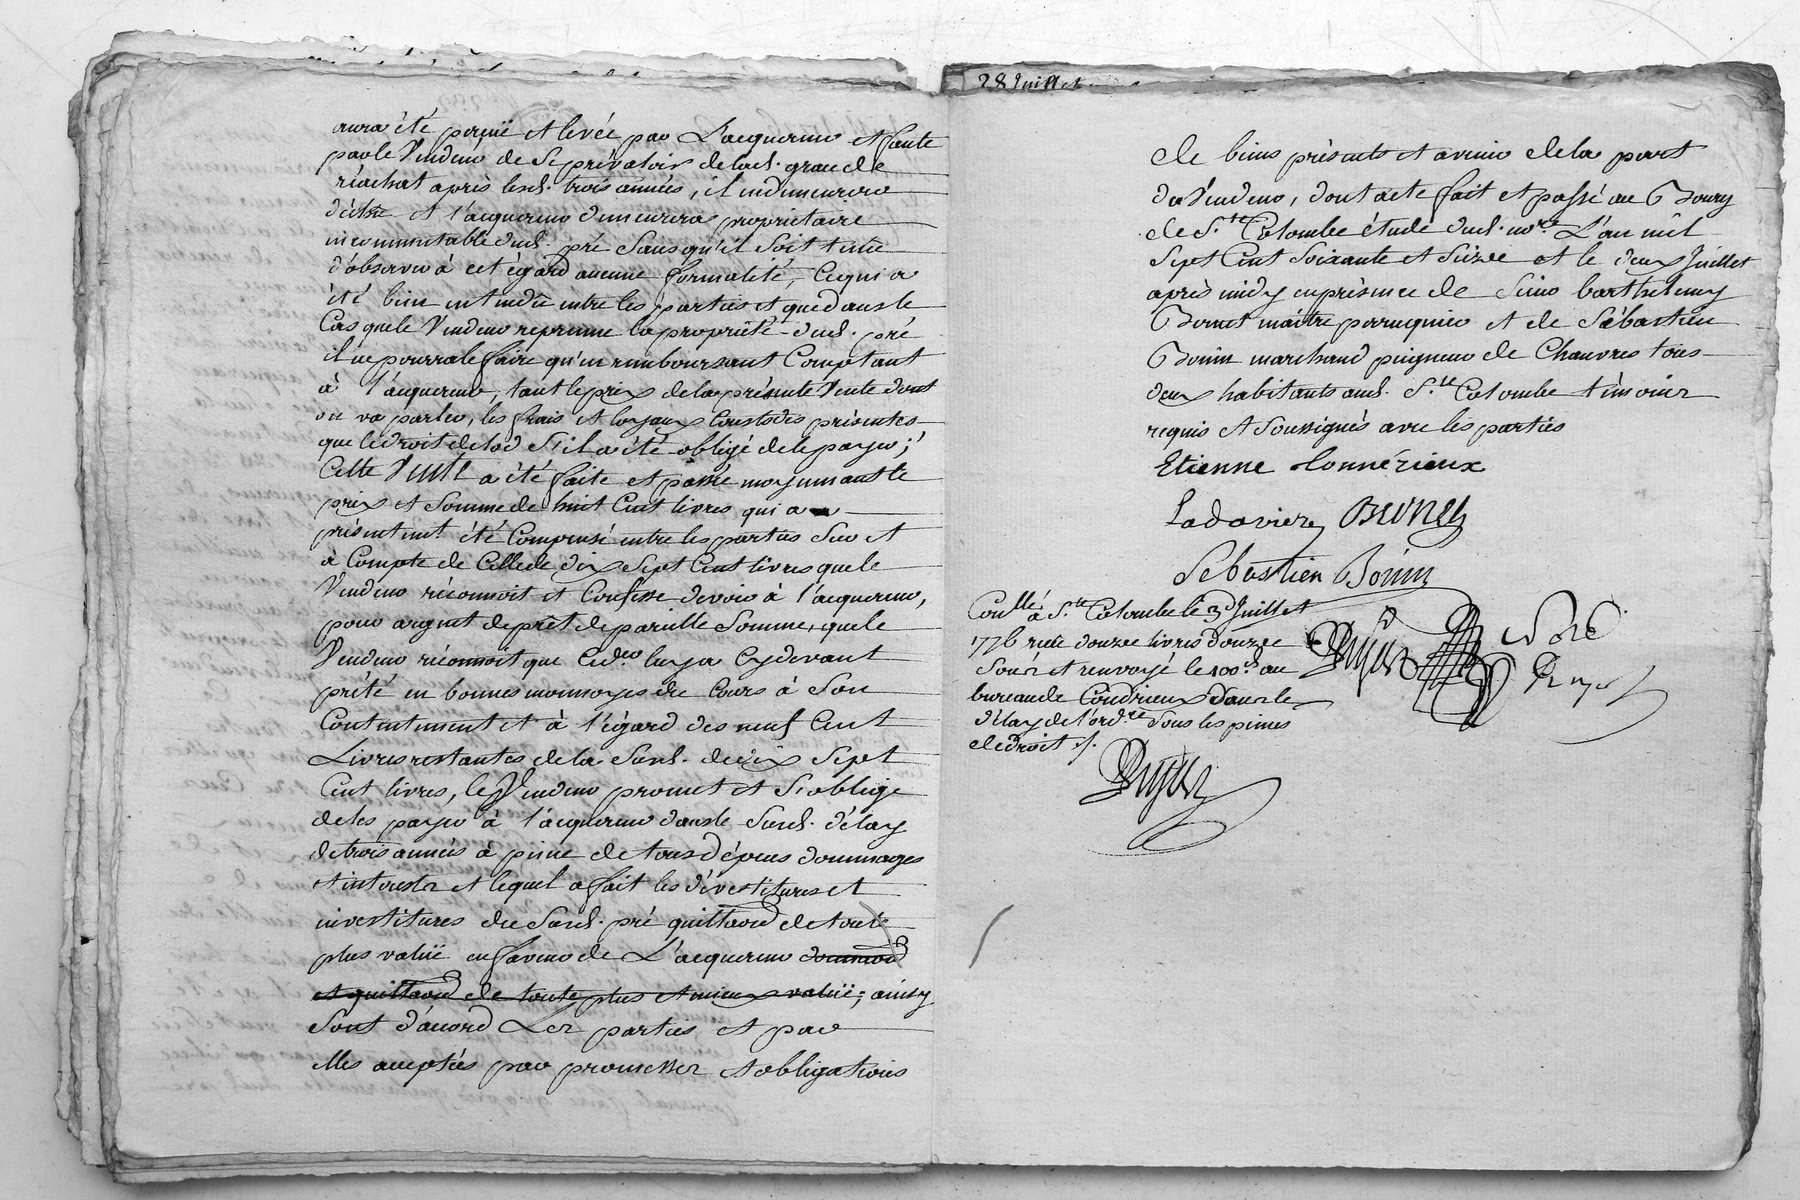 aura été perçüe et levée par L'acquereur et faute
par le Vendeur de Se prévaloir de lad. grace de
réachat après lesd. trois années, il en demeurera
déchu et l'acquereur demeurera proprietaire
incommutable dud. pré Sans qu'il Soit tenu
d'observer à cet égard aucune formalité, Ce qui a
été bien entendu entre les parties et que dans le
Cas que le Vendeur reprenne la propriété dud. pré
il ne pourra le faire qu'en remboursant Comptant
à l'acquereur, tant le prix de la présente Vente dont
on va parler, les frais et loyaux Coust des présentes
que le droit de lod S'il a été obligé de le payer;
Cette Vente a été faite et passée moyennant le
prix et Somme de huit Cent livres qui a
présentement été Compensé entre les parties Sur et
à Compte de Celle de dix Sept Cent livres que le
Vendeur réconnoit et Confesse devoir à l'acquereur,
pour argent de prêt de pareille Somme, que le
Vendeur réconnoit que led. eur luy a Cydevant
prêté en bonnes monnoyes du Cours à Son
Contentement et à l'égard des neuf Cent
Livres restantes de la Susd. dedix Sept
Cent livres, le Vendeur promet et S'oblige
de les payer à l'acquereur dans le Susd. délay
de trois années à peine de tous dépens dommages
et interests et lequel a fait les dévestitures et
investitures du Susd. pré quittant de toute
plus valüe en faveur de L'acquereur donnant
et quittant de toute plus et mieux valüe; ainsy
Sont d'accord Les parties et par
elles acceptées par promesses et obligations
28 Juillet
de biens présents et avenir de la part
du Vendeur, dont acte fait et passé au Bourg
de S.te Colombe étude dud. no.re L'an mil
Sept Cent Soixante et Seize et le deux Juillet
après midy en présence de Sieur barthelemy
Bornet maitre perruquier et de Sébastien
Bonin marchand peigneur de Chanvres tous
deux habitants aud. S.te Colombe témoins
requis et Soussignés avec les parties
Etienne Connérieux
Ladavière Burnet
Sebastien Bonin
Conllé à S.te Colombe le 3 Juillet
1776 reçu douze livres douze
Sous et renvoyé le 100.e au
bureau de Condrieux dans le
délay de l'ord.re Sous les peines
de droit /.